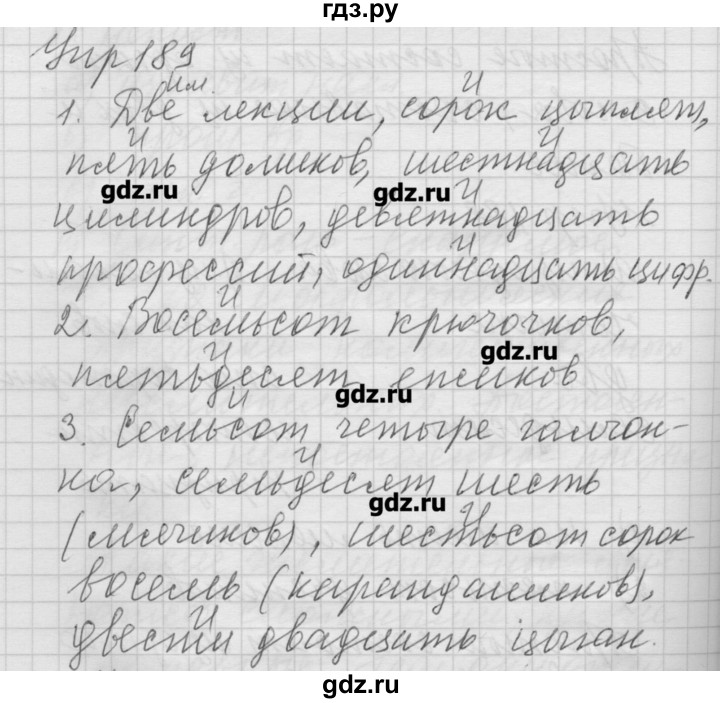 гдз.ру
Упр 189
Им.
1. Две лекции, сорок цыплят,
И И
пять домиков, шестнадцать
gdz.ru gdz.ru
И
цилиндров, девятнадцать
И
профессий, одиннадцать цифр.
И
2. Восемьсот крючочков,
gdz.ru
И
пятьдесят ёжиков
gdz.ru
И
3. Семьсот четыре галчон-
И
ка, семьдесят шесть
gdz.ru
И
(мячиков), шестьсот сорок
восемь (карандашиков),
И
двести двадцать цыган.
gdz.ru